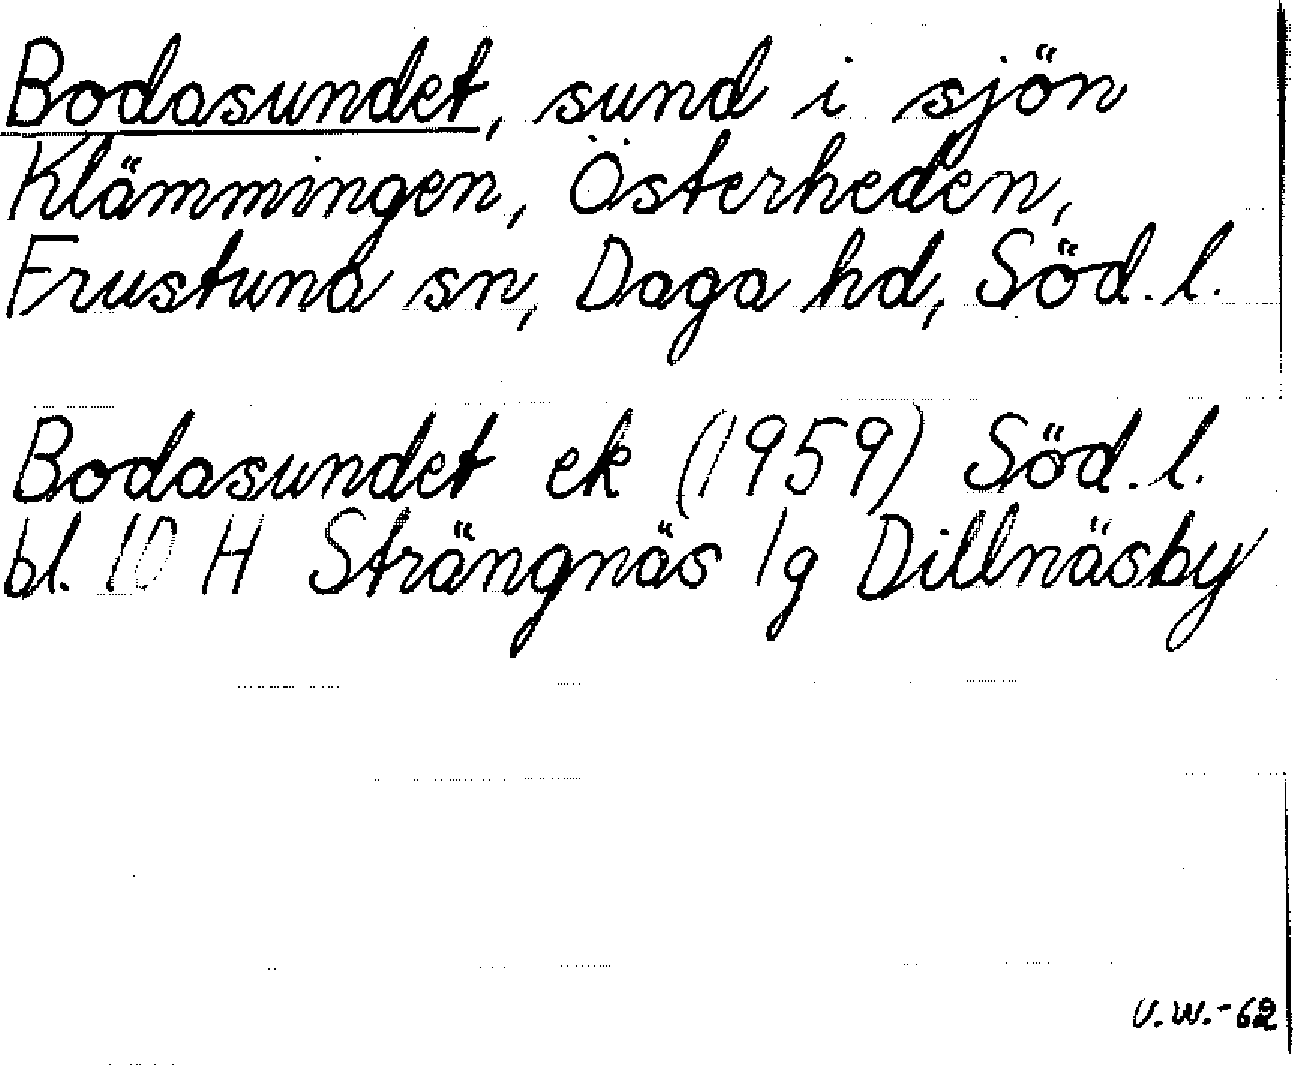 Bodasundet, sund i sjön
Klämmingen, Österheden,
Frustuna sn, Daga hd, Söd. l.
Bodasundet ek (1959) Söd. l.
bl. 10 H Strängnäs 1g Dillnäsby
U.W.-62